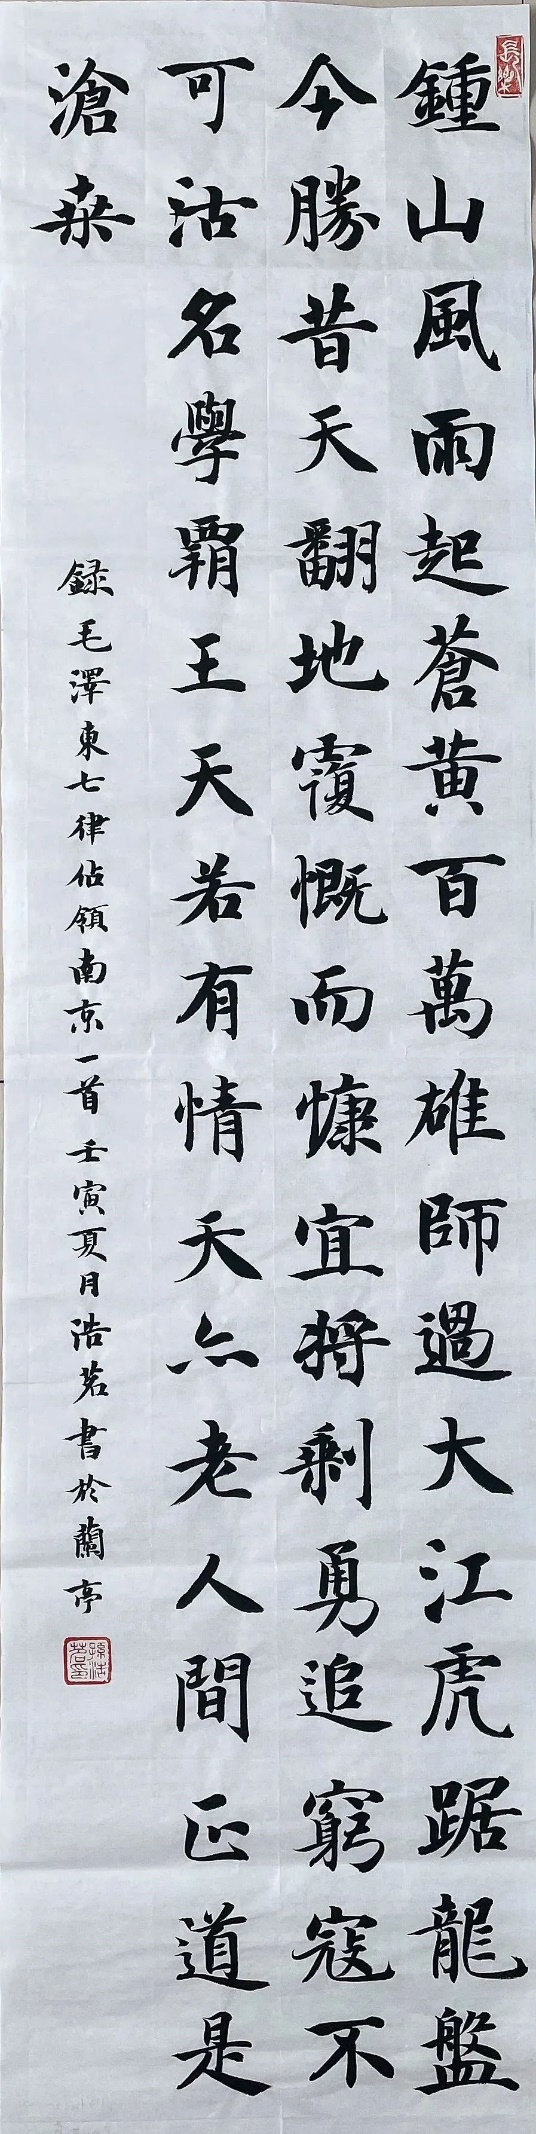 長樂
鍾山風雨起蒼黄百萬雄師過大江虎踞龍盤
今勝昔天翻地覆慨而慷宜將剩勇追窮寇不
可沽名學覇王天若有情天亦老人間正道是
滄桒
録毛澤東七律佔領南京一首 壬寅夏月浩茗書於蘭亭
孫浩茗印